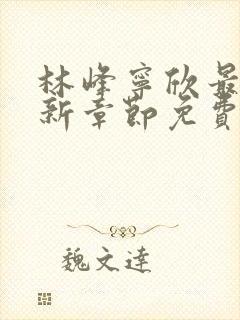 林峰寧欣最
新章節免費
魏文達